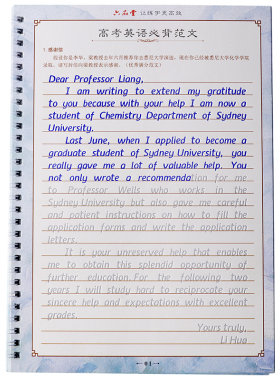 六品堂 让练字更高效
高考英语必背范文
1 感谢信
Dear Professor Liang,
I am writing to extend my gratitude
to you because with your help I am now a
student of Chemistry Department of Sydney
University.
Last June, when I applied to become a
graduate student of Sydney University, you
really gave me a lot of valuable help. You
not only wrote a recommendation for me
to Professor Wells who works in the
Sydney University but also gave me careful
and patient instructions on how to fill the
application forms and write the application
letters.
It is your unreserved help that enables
me to obtain this splendid opportunity of
further education. For the following two
years I will study hard to reciprocate your
sincere help and expectations with excellent
grades.
Yours truly,
Li Hua
01